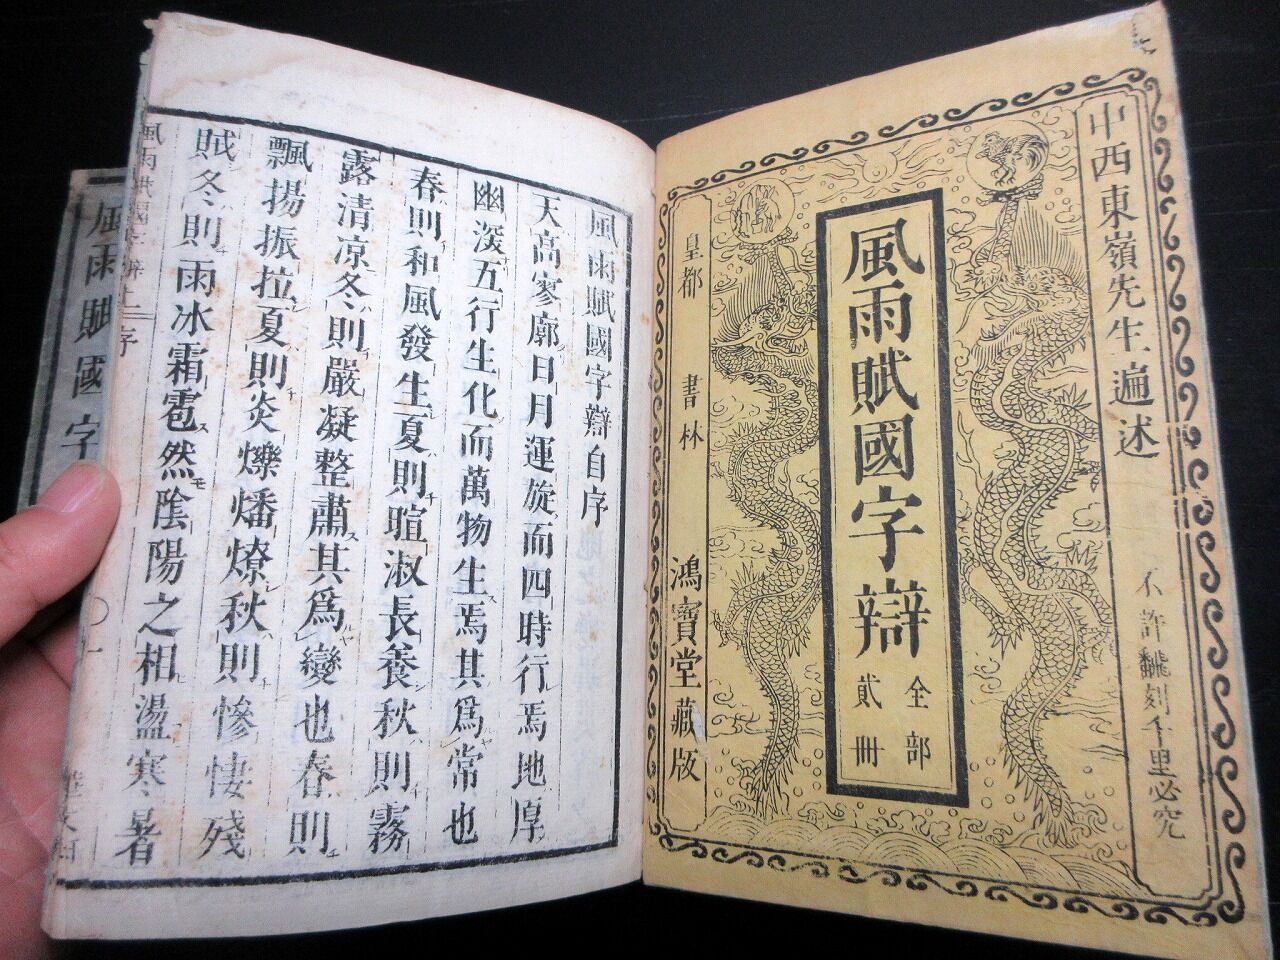 中西東嶺先生遍述
不許翻刻千里必究
風雨賦國字辯
全部
貳冊
皇都 書林
鴻寶堂藏版
風雨賦國字辯自序
天高寥廓日月運旋而四時行焉地厚
幽深五行生化而萬物生焉其爲常也
春則和風發生夏則暄淑長養秋則霧
露清凉冬則嚴凝整肅其爲變也春則
飄揚振拉夏則炎爍燔燎秋則慘悽殘
賊冬則雨冰霜雹然陰陽之相盪寒暑
風雨賦國字